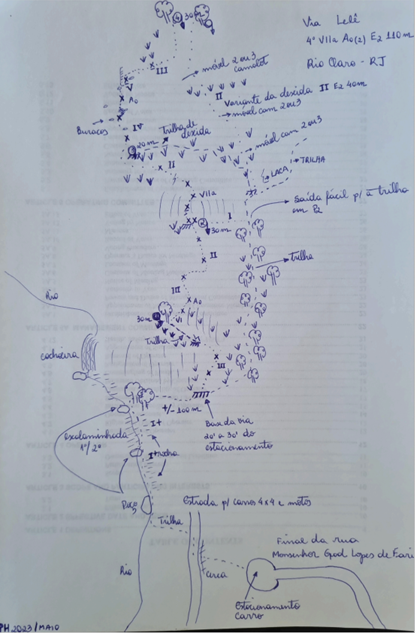 Via Lell
4º VIIa A0(2) E2 110m
Rio Claro - RJ
30m
III
móvel 2 ou 3
camalot
II
Variante da descida II E2 40m
móvel cam 2 ou 3
A0
Buracos
I
Trilha de
descida
20m
móvel cam 2 ou 3
II
TRILHA
LACA
VIIa
Saída fácil p/ a trilha
em P2
I
30m
II
Trilha
III
Rio
A0
30m
Trilha
cachoeira
III
+/- 100m
Base da via
20' a 30' do
estacionamento
I+
escalaminhada
1º/2º
I+ rocha
Poço
Estrada p/ carros 4x4 e motos
Trilha
Final da rua
Monsenhor Good Lopes de Fari
Rio
cerca
Estacionamento
carro
PH 2023/MAIO